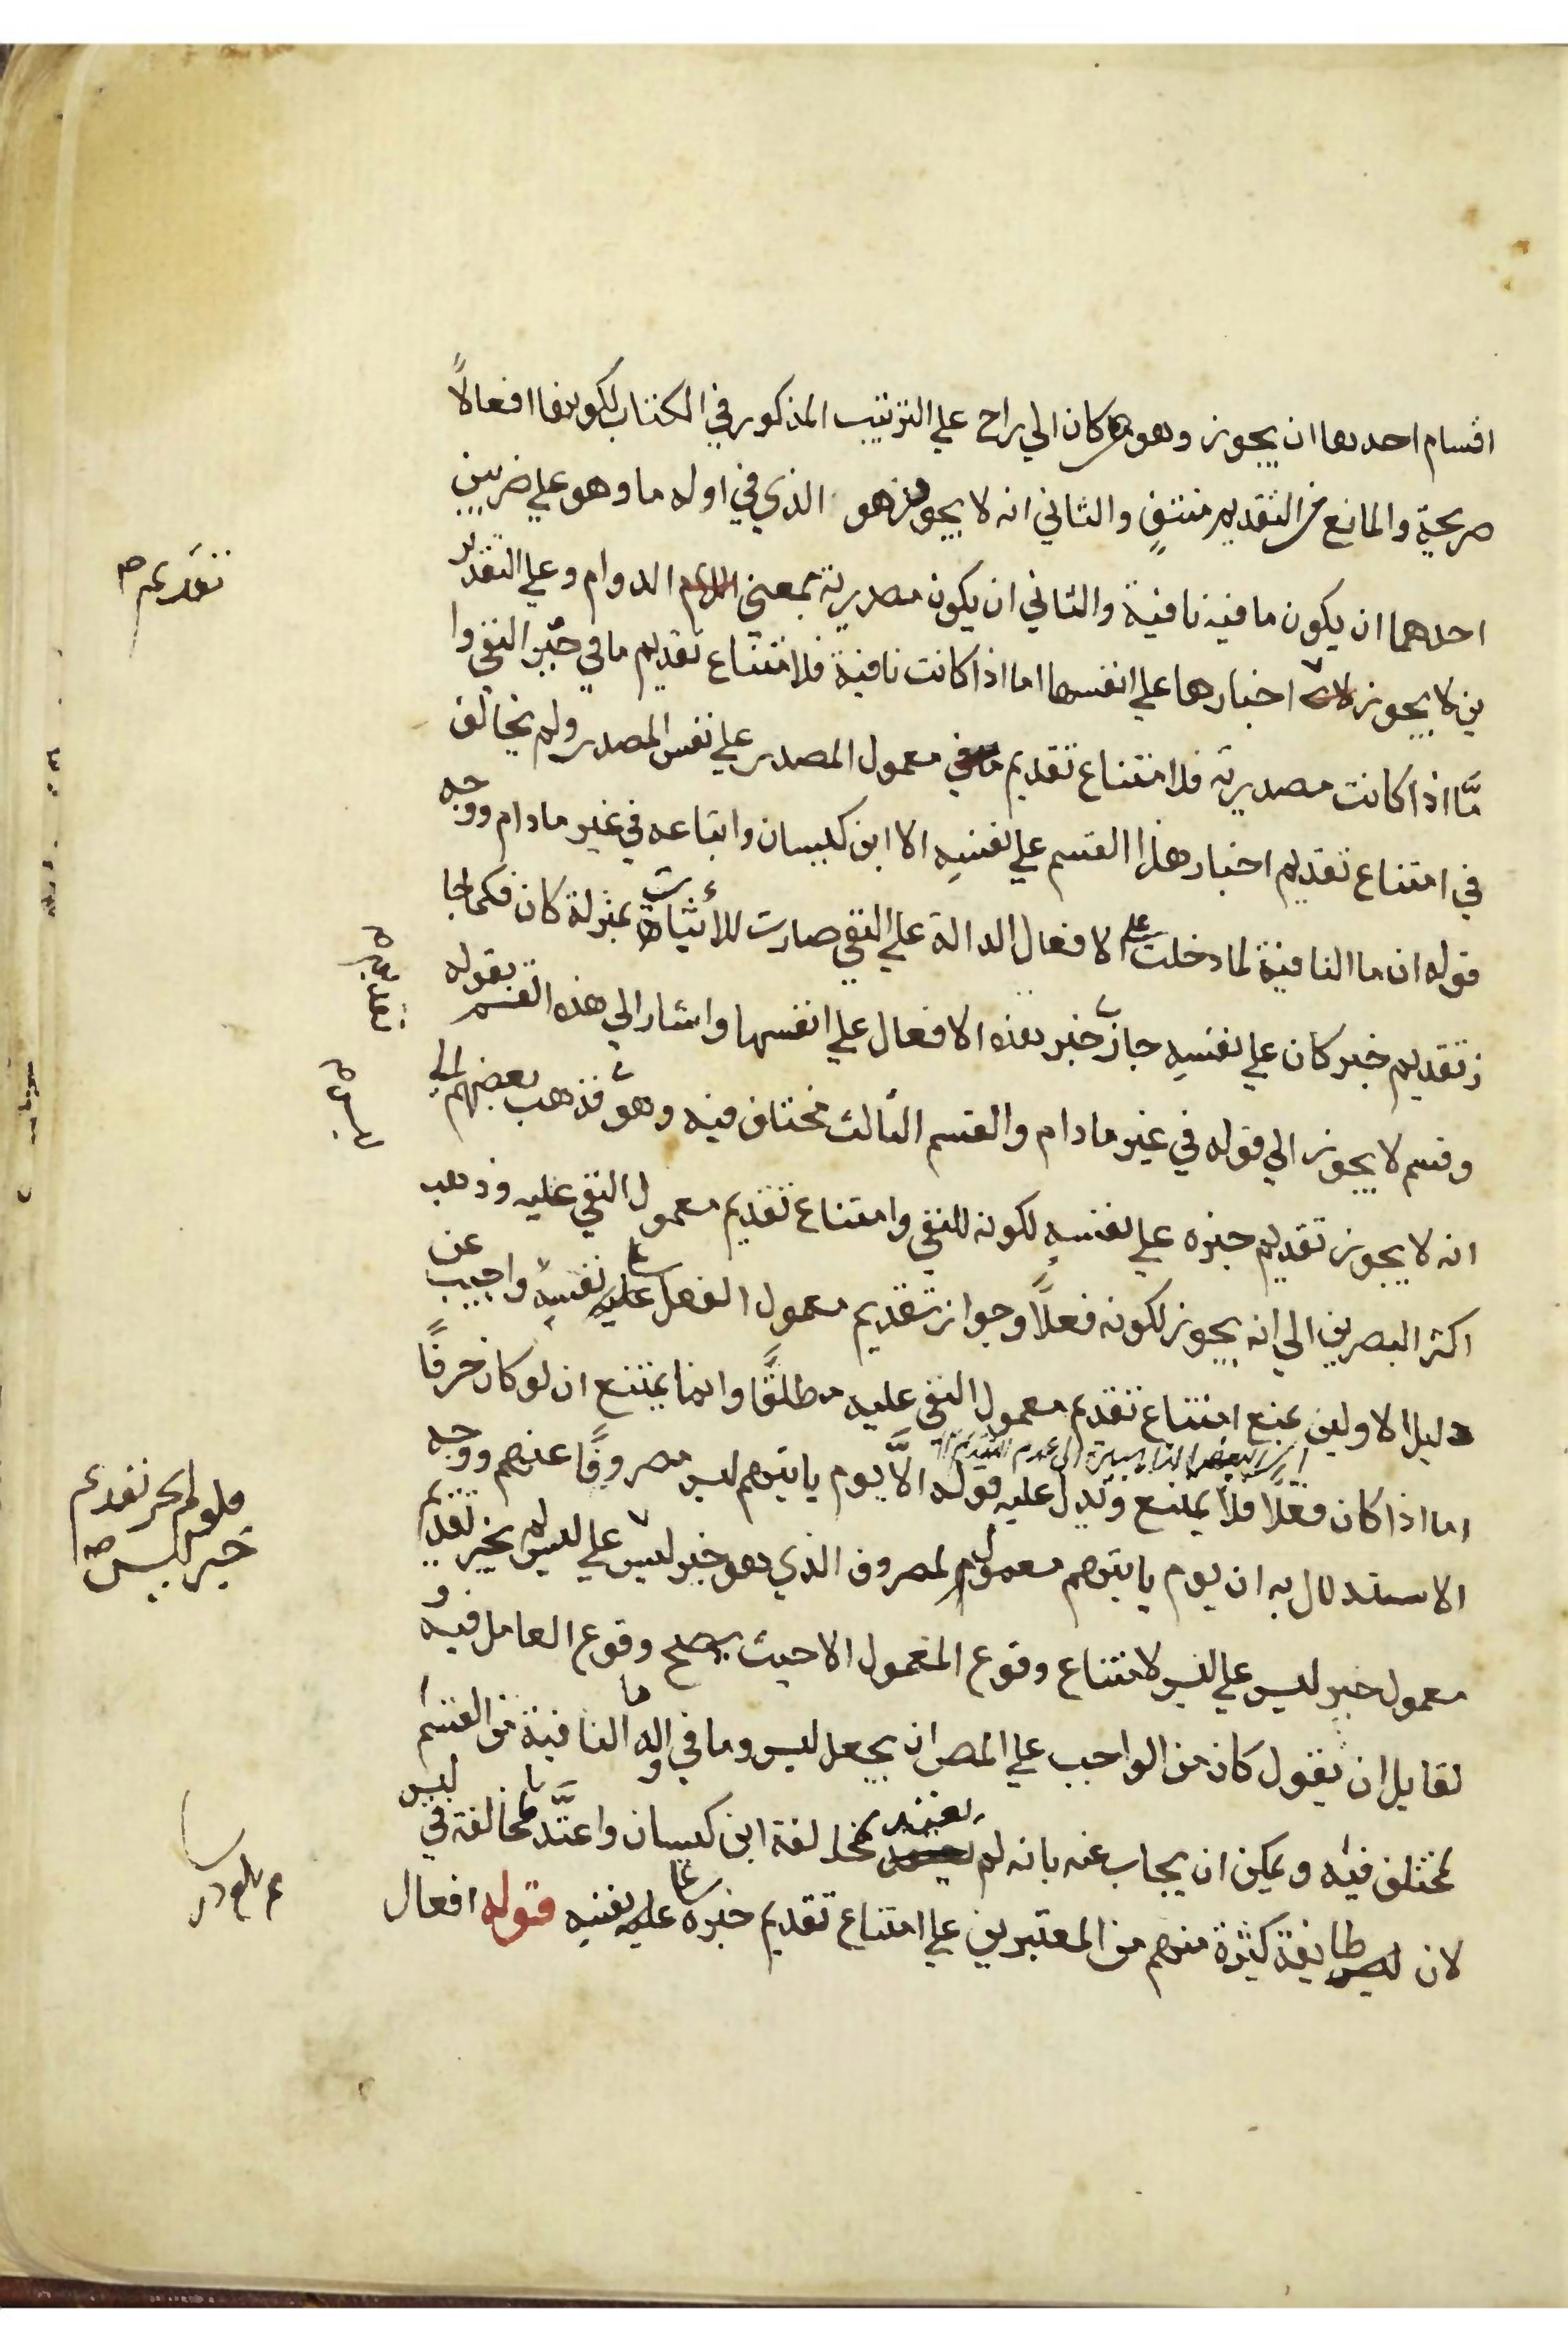 اقسام احدها ان يجوز وهو كان الي براح علي الترتيب المذكور في الكتاب لكونها افعالاً
صريحة والمانع من التقديم منتفٍ والثاني انه لا يجوز وهو الذي في اوله ما وهو علي ضربين
احدهما ان يكون ما فيه نافية والثاني ان يكون مصدرية بمعني الدوام وعلي التقدير
ين لا يجوز اخبارها علي انفسها اما اذا كانت نافية فلامتناع تقديم ما في حيز النفي وا
مّا اذا كانت مصدرية فلامتناع تقديم معمول المصدر علي نفس المصدر ولم يخالف
في امتناع تقديم اخبار هذا القسم علي نفسه الا ابن كيسان واتباعه في غير مادام ووجه
قوله ان ما النافية لما دخلت علي الافعال الدالة علي النفي صارت للاثبات بمنزلة كان فكما جا
ز تقديم خبر كان علي نفسه جاز خبر هذه الافعال علي انفسها واشار الي هذه القسم بقوله
وقسم لا يجوز الي قوله في غير مادام والقسم الثالث مختلف فيه وهو فذهب بعضهم الي
انه لا يجوز تقديم خبره علي نفسه لكونه للنفي وامتناع تقديم معمول النفي عليه وذهب
اكثر البصرين الي انه يجوز لكونه فعلاً وجواز تقديم معمول الفعل علي نفسه واجيب عن
دليل الاولين بمنع امتناع تقديم معمول النفي عليه مطلقًا وانما يمتنع ان لو كان حرفًا
اما اذا كان فعلاً فلا يمتنع ويدل عليه قوله الاّ يوم ياتيهم ليس مصروفًا عنهم ووجه
الاستدلال به ان يوم ياتيهم معمول لمصروف الذي هو خبر ليس علي ليس لم يجز تقديم
معمول خبر ليس علي ليس لامتناع وقوع المعمول الا حيث يصلح وقوع العامل فيه و
لقايل ان يقول كان من الواجب علي المص ان يجعل ليس وما في اوله ما النافية من القسم
المختلف فيه ويمكن ان يجاب عنه بانه لم يعتبر مخالفة ابن كيسان واعتدّ بالمخالفة في ليس
لان طايفة كثيرة منهم من المعتبرين علي امتناع تقديم خبره علي نفسه قوله افعال
تقديم صح
فلو لم يجز تقديم
خبر ليس صح